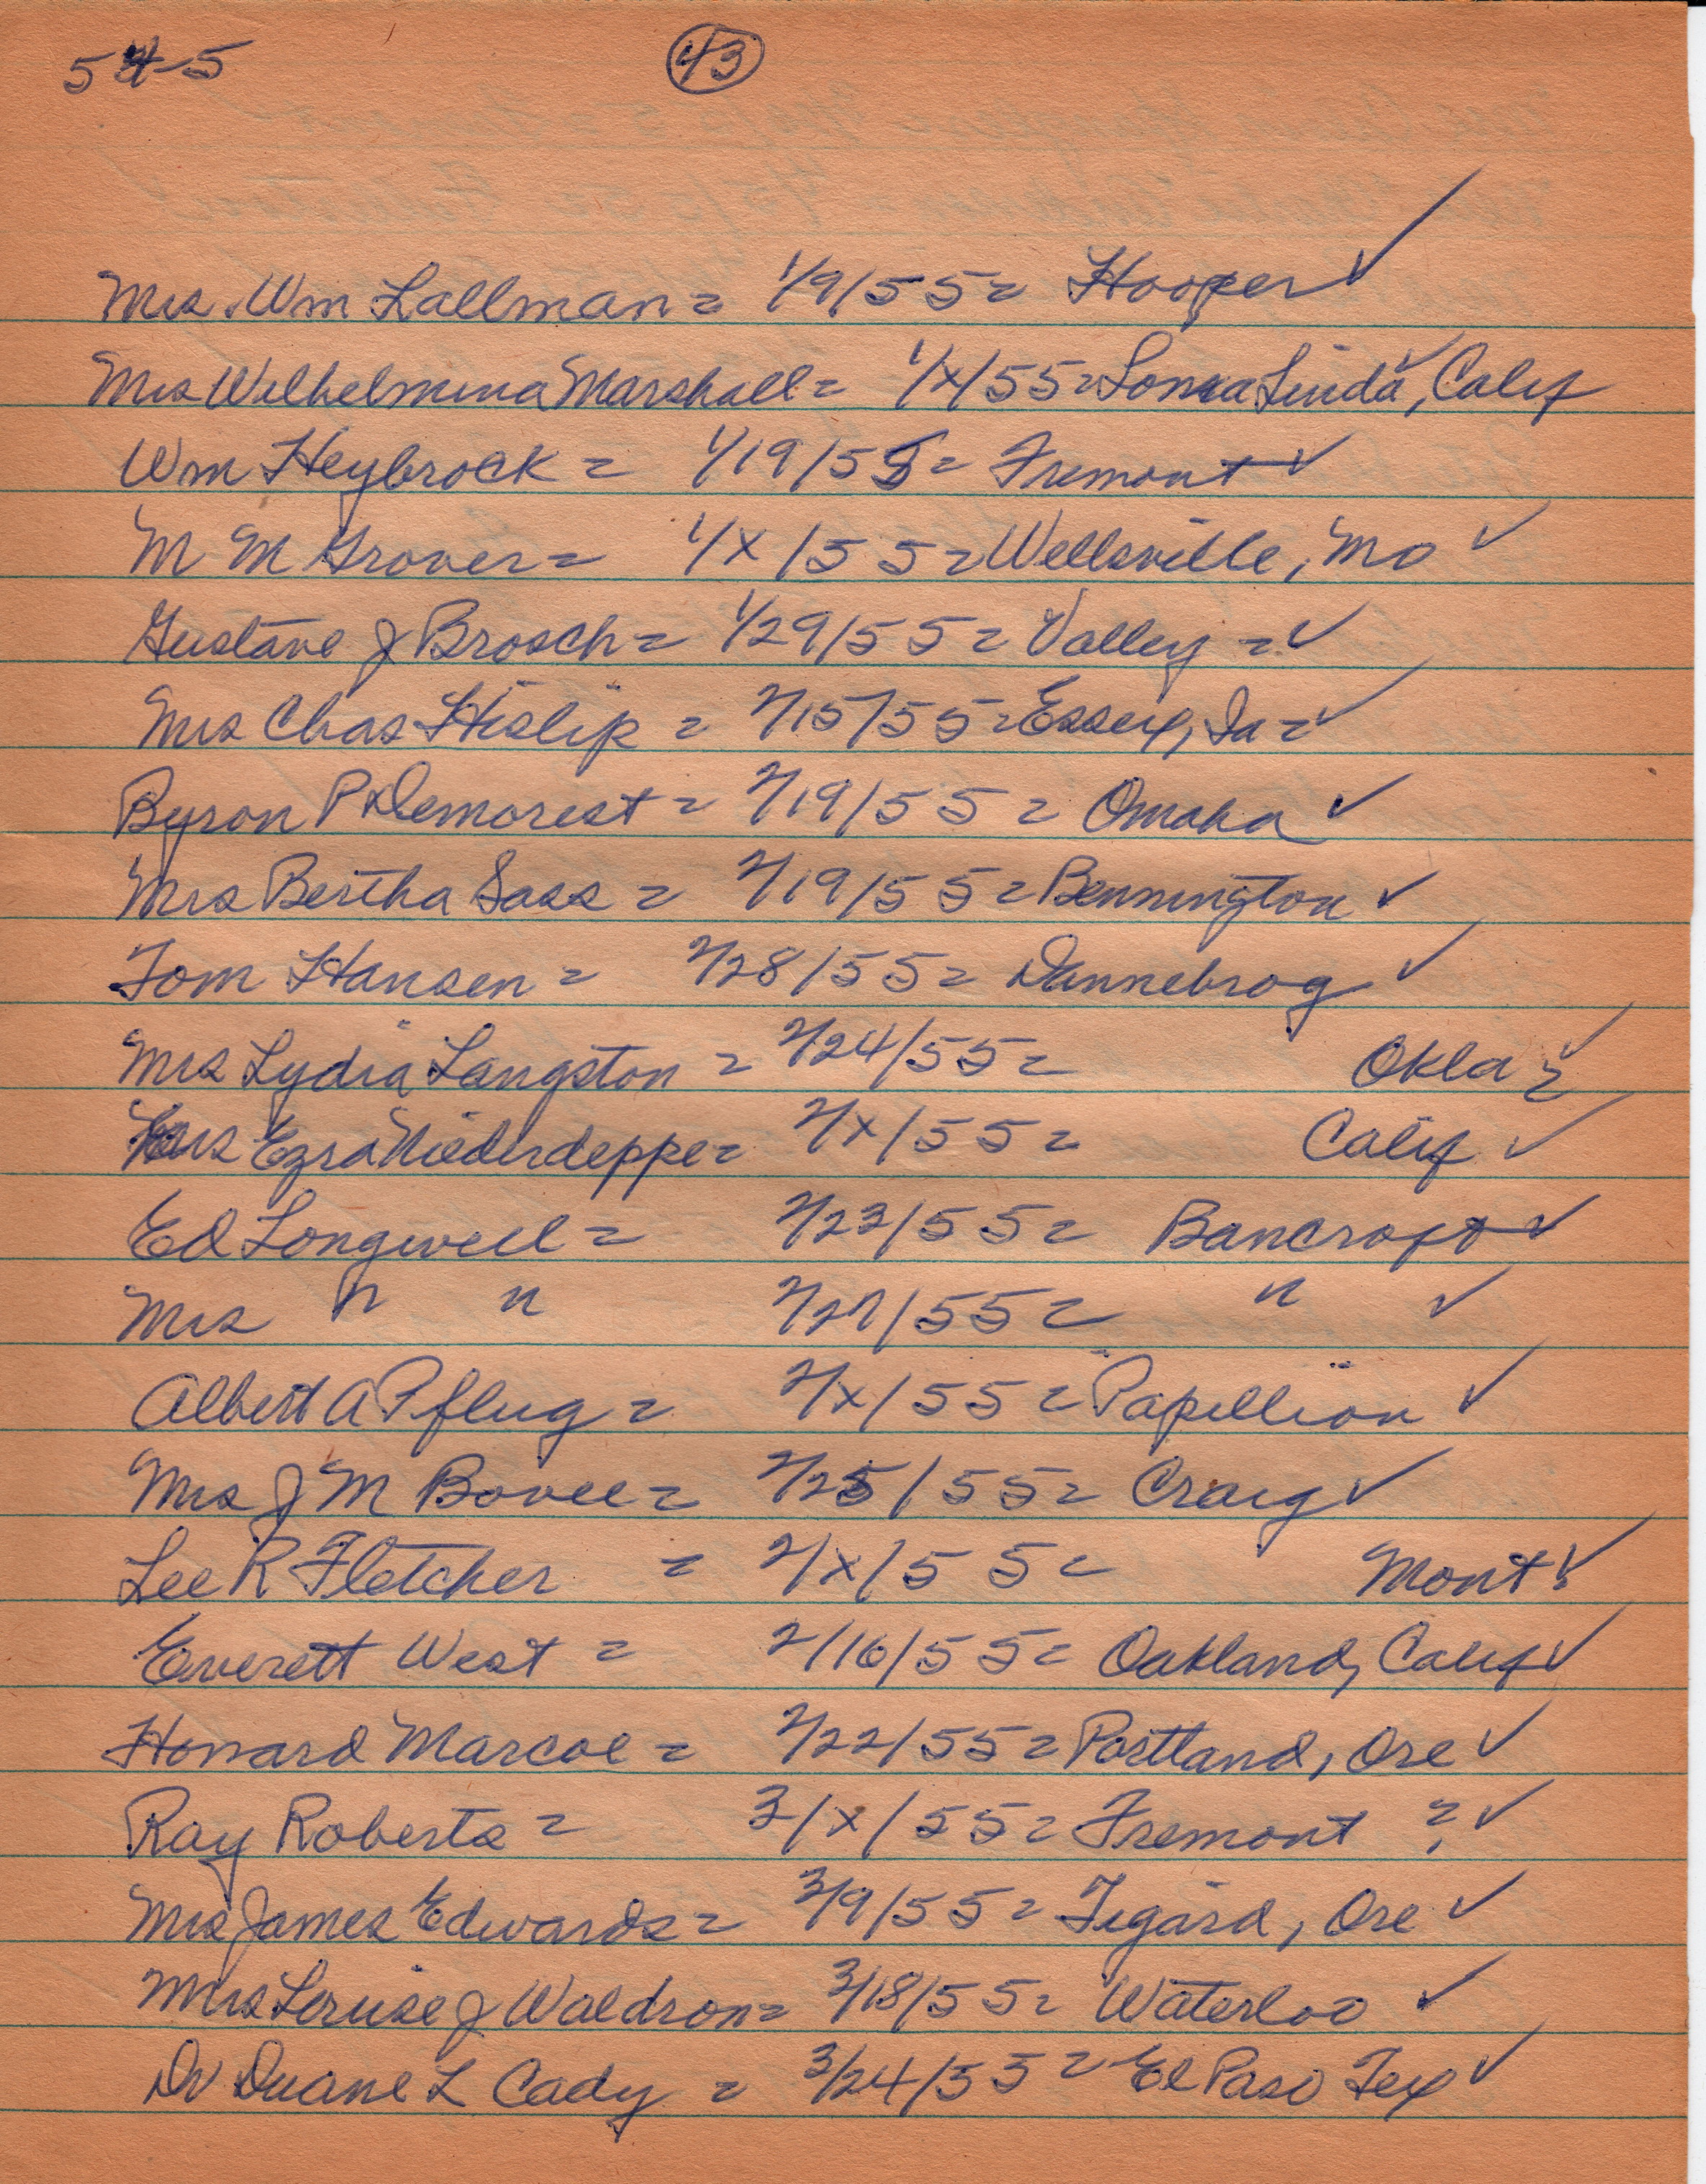 54-5 43
Mrs. Wm Lallman = 1/9/55 = Hooper ✓
Mrs Wilhelmina Marshall = 1/x/55 = Loma Linda ✓, Calif
Wm Heybrock = 1/19/55 = Fremont ✓
M M Grover = 1/x/55 = Wellsville, Mo ✓
Gustave J Brosch = 1/29/55 = Valley = ✓
Mrs Chas Hislip = 2/15/55 = Essex, Ia = ✓
Byron P Demorest = 2/19/55 = Omaha ✓
Mrs Bertha Sass = 2/19/55 = Bennington ✓
Tom Hansen = 2/28/55 = Dannebrog ✓
Mrs Lydia Langston = 2/24/55 = Okla ? ✓
Mrs Ezra Niederdeppe = 2/x/55 = Calif ✓
Ed Longwell = 2/23/55 = Bancroft ✓
Mrs " " 2/27/55 = " ✓
Albert A Pflug = 2/x/55 = Papillion ✓
Mrs J M Bovee = 2/25/55 = Craig ✓
Lee R Fletcher = 2/x/55 = Mont ? ✓
Everett West = 2/16/55 = Oakland, Calif ✓
Howard Marcoe = 2/22/55 = Portland, Ore ✓
Ray Roberts = 3/x/55 = Fremont ? ✓
Mrs James Edwards = 3/9/55 = Tigard, Ore ✓
Mrs Louise J Waldron = 3/18/55 = Waterloo ✓
Dr Duane L Cady = 3/24/55 = El Paso Tex ✓